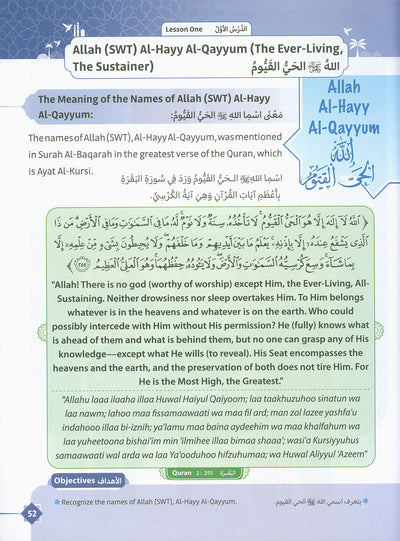 Lesson One الدَّرْسُ الأَوَّلُ
Allah (SWT) Al-Hayy Al-Qayyum (The Ever-Living,
The Sustainer) اللهُ ﷻ الحَيُّ القَيُّومُ
The Meaning of the Names of Allah (SWT) Al-Hayy
Al-Qayyum: مَعْنَى اسْمَا اللهِ ﷻ الحَيُّ القَيُّومُ:
Allah
Al-Hayy
Al-Qayyum
الله
الحي القيوم
The names of Allah (SWT), Al-Hayy Al-Qayyum, was mentioned
in Surah Al-Baqarah in the greatest verse of the Quran, which
is Ayat Al-Kursi.
اسْمَا اللهِ الحَيُّ القَيُّومُ وَرَدَ فِي سُورَةِ البَقَرَةِ
بِأَعْظَمِ آيَاتِ القُرْآنِ وَهِيَ آيَةُ الكُرْسِيِّ.
﴿ اللَّهُ لَا إِلَهَ إِلَّا هُوَ الْحَيُّ الْقَيُّومُ لَا تَأْخُذُهُ سِنَةٌ وَلَا نَوْمٌ لَهُ مَا فِي السَّمَاوَاتِ وَمَا فِي الْأَرْضِ مَنْ ذَا
الَّذِي يَشْفَعُ عِنْدَهُ إِلَّا بِإِذْنِهِ يَعْلَمُ مَا بَيْنَ أَيْدِيهِمْ وَمَا خَلْفَهُمْ وَلَا يُحِيطُونَ بِشَيْءٍ مِنْ عِلْمِهِ إِلَّا
بِمَا شَاءَ وَسِعَ كُرْسِيُّهُ السَّمَاوَاتِ وَالْأَرْضَ وَلَا يَئُودُهُ حِفْظُهُمَا وَهُوَ الْعَلِيُّ الْعَظِيمُ ﴿٢٥٥﴾ ﴾
"Allah! There is no god (worthy of worship) except Him, the Ever-Living, All-
Sustaining. Neither drowsiness nor sleep overtakes Him. To Him belongs
whatever is in the heavens and whatever is on the earth. Who could
possibly intercede with Him without His permission? He (fully) knows what
is ahead of them and what is behind them, but no one can grasp any of His
knowledge—except what He wills (to reveal). His Seat encompasses the
heavens and the earth, and the preservation of both does not tire Him. For
He is the Most High, the Greatest."
"Allahu laaa ilaaha illaa Huwal Haiyul Qaiyoom; laa taakhuzuhoo sinatun wa
laa nawm; lahoo maa fissamaawaati wa maa fil ard; man zal lazee yashfa'u
indahooo illaa bi-iznih; ya'lamu maa baina aydeehim wa maa khalfahum wa
laa yuheetoona bishai'im min 'ilmihee illaa bimaa shaaa'; wasi'a Kursiyyuhus
samaawaati wal arda wa laa Ya'ooduhoo hifzuhumaa; wa Huwal Aliyyul 'Azeem"
Quran 2 : 255 البَقَـرَة
Objectives الأهداف
★ Recognize the names of Allah (SWT), Al-Hayy Al-Qayyum. ★ يتعرف اسمي الله ﷻ الحي القيوم.
52